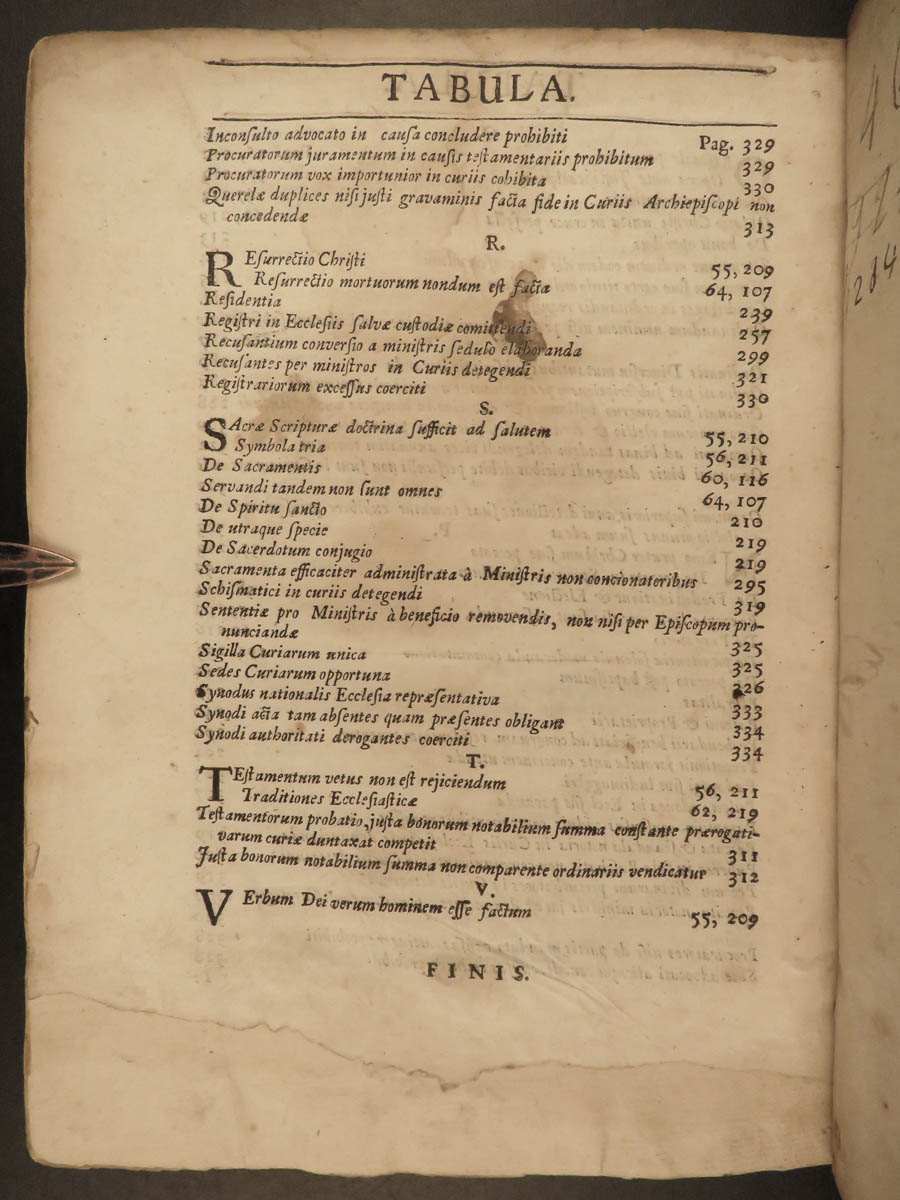 TABULA.
Inconſulto advocato in cauſa concludere prohibiti Pag. 329
Procuratorum juramentum in cauſis teſtamentariis prohibitum 329
Procuratorum vox importunior in curiis cohibita 330
Querelæ duplices niſi juſti gravaminis facta fide in Curiis Archiepiſcopi non
concedendæ 313
R.
REſurrectio Chriſti 55, 209
Reſurrectio mortuorum nondum eſt facta 64, 107
Reſidentia 239
Regiſtri in Eccleſiis ſalvæ cuſtodiæ comittendi 257
Recuſantium converſio a miniſtris ſedulo elaboranda 299
Recuſantes per miniſtros in Curiis detegendi 321
Regiſtrariorum exceſſus coerciti 330
S.
SAcræ Scripturæ doctrina ſufficit ad ſalutem 55, 210
Symbola tria 56, 211
De Sacramentis 60, 116
Servandi tandem non ſunt omnes 64, 107
De Spiritu ſancto 210
De utraque ſpecie 219
De Sacerdotum conjugio 219
Sacramenta efficaciter adminiſtrata à Miniſtris non concionatoribus 295
Schiſmatici in curiis detegendi 319
Sententiæ pro Miniſtris à beneficio removendis, non niſi per Epiſcopum pro-
nunciandæ 325
Sigilla Curiarum unica 325
Sedes Curiarum opportuna 326
Synodus nationalis Eccleſia repræſentativa 333
Synodi acta tam abſentes quam præſentes obligant 334
Synodi authoritati derogantes coerciti 334
T.
TEſtamentum vetus non eſt rejiciendum 56, 211
Traditiones Eccleſiaſticæ 62, 219
Teſtamentorum probatio, juſta bonorum notabilium ſumma conſtante prærogati-
varum curiæ duntaxat competit 311
Juſta bonorum notabilium ſumma non comparente ordinariis vendicatur 312
V.
VErbum Dei verum hominem eſſe factum 55, 209
FINIS.
284